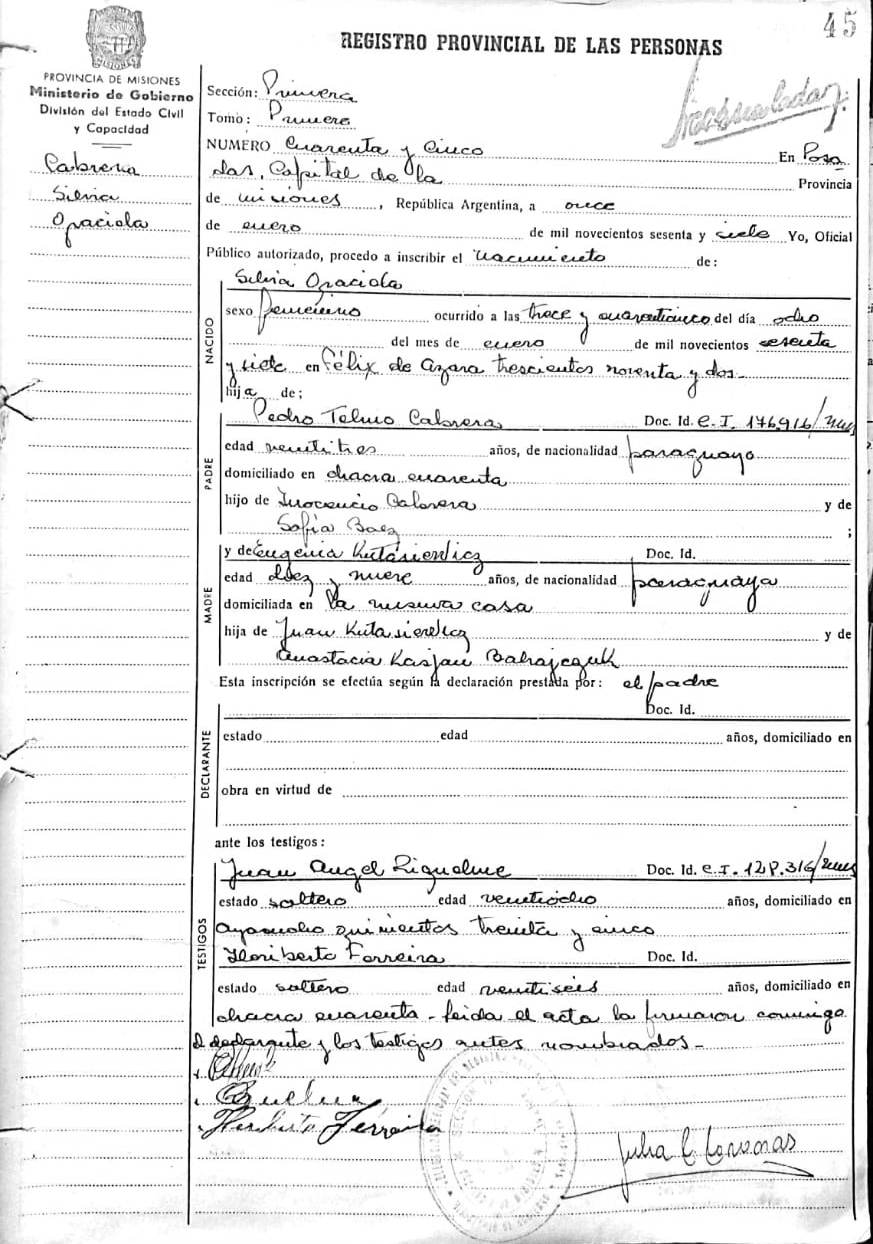 45
REGISTRO PROVINCIAL DE LAS PERSONAS
PROVINCIA DE MISIONES
Ministerio de Gobierno
División del Estado Civil
y Capacidad
Cabrera
Silvia
Graciela
Sección: Primera
Tomo: Primero
NUMERO Cuarenta y Cinco En Posa
das, Capital de la Provincia
de misiones, República Argentina, a once
de enero de mil novecientos sesenta y siete Yo, Oficial
Público autorizado, procedo a inscribir el nacimiento de:
NACIDO
Silvia Graciela
sexo femenino ocurrido a las trece y cuarenticinco del día ocho
del mes de enero de mil novecientos sesenta
y siete en Félix de Azara trescientos noventa y dos-
hija de;
PADRE
Pedro Telmo Cabrera Doc. Id. C. I. 176.916/
edad veintitres años, de nacionalidad paraguayo
domiciliado en chacra cuarenta
hijo de Inocencio Cabrera y de
Sofía Baez ;
MADRE
y de Eugenia Kutasiewicz Doc. Id.
edad diez y nueve años, de nacionalidad paraguaya
domiciliada en la misma casa
hija de Juan Kutasierewicz y de
Anastacia Kasjan
Esta inscripción se efectúa según la declaración prestada por: el padre
Doc. Id.
DECLARANTE
estado edad años, domiciliado en
obra en virtud de
ante los testigos:
TESTIGOS
Juan Angel Riquelme Doc. Id. C. I. 128.316/
estado soltero edad veintiocho años, domiciliado en
Ayacucho quinientos treinta y cinco
Heriberto Ferreira Doc. Id.
estado soltero edad veintiseis años, domiciliado en
chacra cuarenta - leida el acta la firmaron conmigo
el declarante y los testigos antes nombrados-
Heriberto Ferreira
Julia C